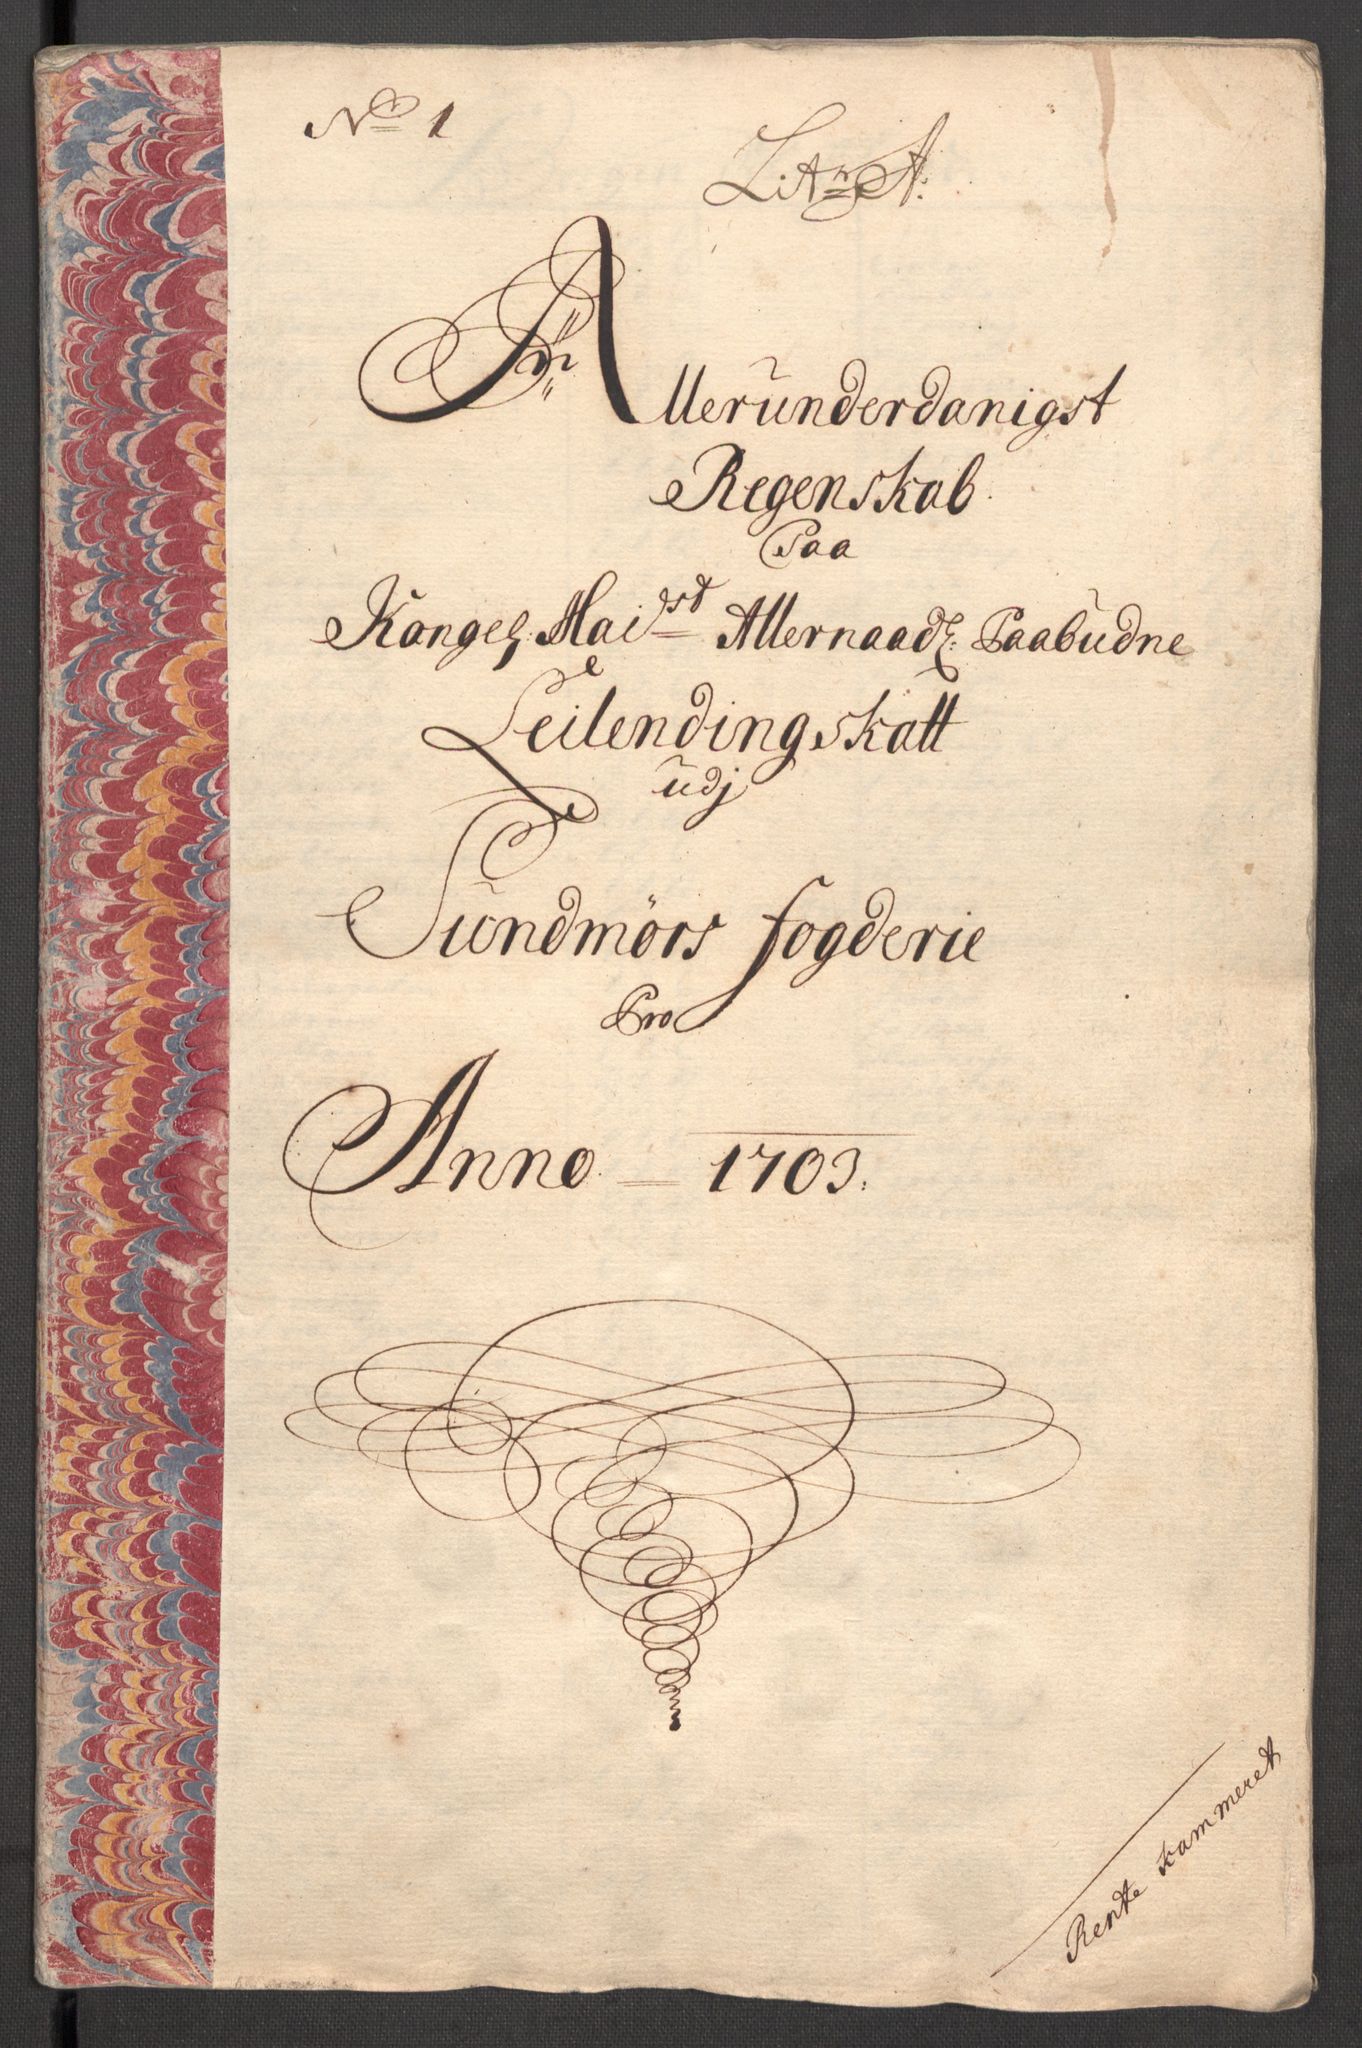 No 1
Litr A:
Allerunderdanigst
Regenskab
Paa
Kongel: Maist Allernaad: Paabudne
Leilendingskatt
udj
Sundmørs fogderie
Pro
Anno 1703.
Rente kammeret